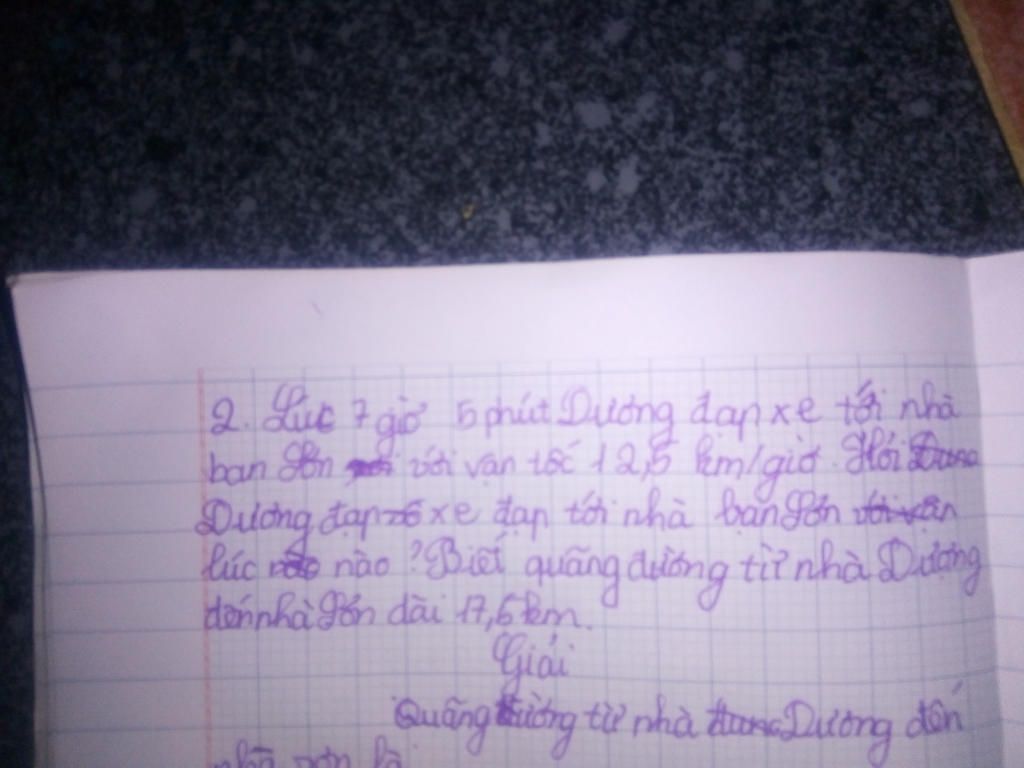 2. Lúc 7 giờ 5 phút Dương đạp xe tới nhà
bạn Sơn với vận tốc 12,5 km/giờ. Hỏi
Dương đạp xe đạp tới nhà bạn Sơn
lúc nào? Biết quãng đường từ nhà Dương
đến nhà Sơn dài 17,5 km.
Giải
Quãng đường từ nhà Dương đến
nhà sơn là